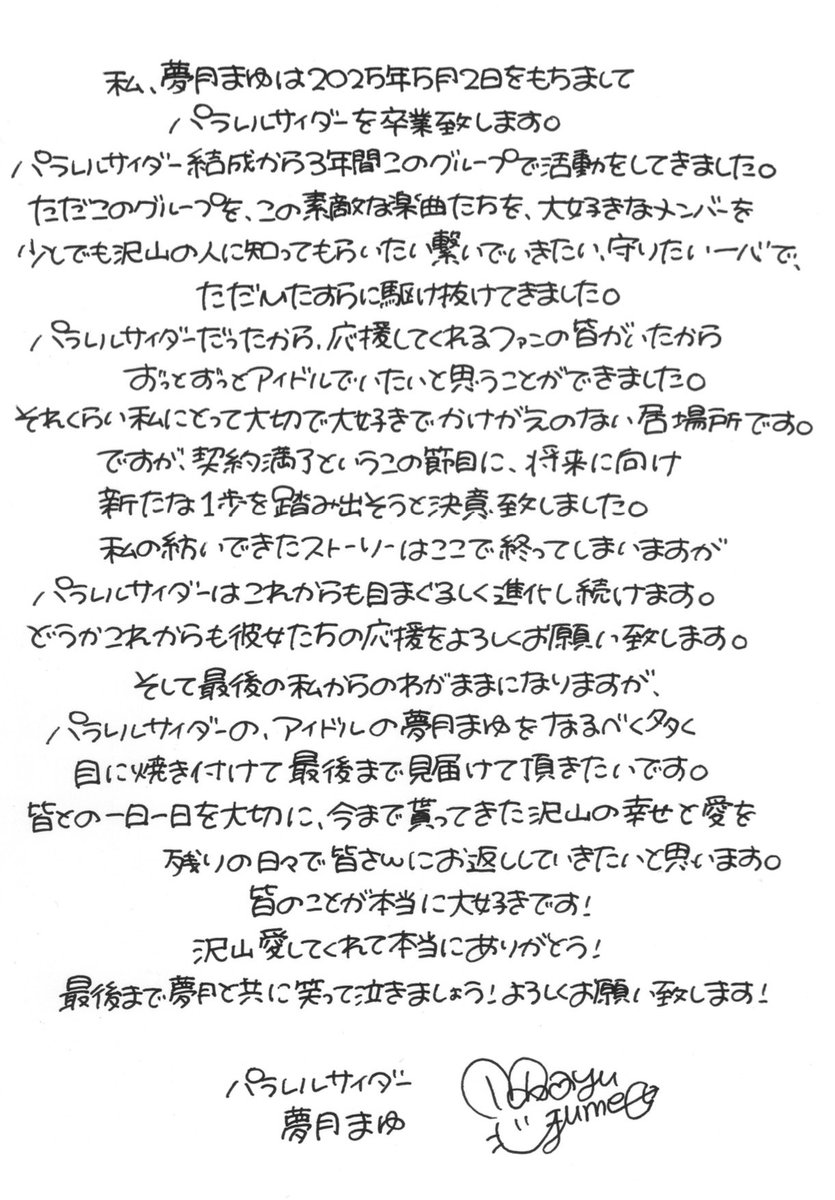 私、夢月まゆは2025年5月2日をもちまして
パラレルサイダーを卒業致します。
パラレルサイダー結成から3年間このグループで活動をしてきました。
ただこのグループを、この素敵な楽曲たちを、大好きなメンバーを
少しでも沢山の人に知ってもらいたい繋いでいきたい、守りたい一心で、
ただひたすらに駆け抜けてきました。
パラレルサイダーだったから、応援してくれるファンの皆がいたから
ずっとずっとアイドルでいたいと思うことができました。
それくらい私にとって大切で大好きでかけがえのない居場所です。
ですが、契約満了というこの節目に、将来に向け
新たな1歩を踏み出そうと決意致しました。
私の紡いできたストーリーはここで終ってしまいますが
パラレルサイダーはこれからも目まぐるしく進化し続けます。
どうかこれからも彼女たちの応援をよろしくお願い致します。
そして最後の私からのわがままになりますが、
パラレルサイダーの、アイドルの夢月まゆをなるべく多く
目に焼き付けて最後まで見届けて頂きたいです。
皆との一日一日を大切に、今まで貰ってきた沢山の幸せと愛を
残りの日々で皆さんにお返ししていきたいと思います。
皆のことが本当に大好きです!
沢山愛してくれて本当にありがとう!
最後まで夢月と共に笑って泣きましょう!よろしくお願い致します!
パラレルサイダー
夢月まゆ